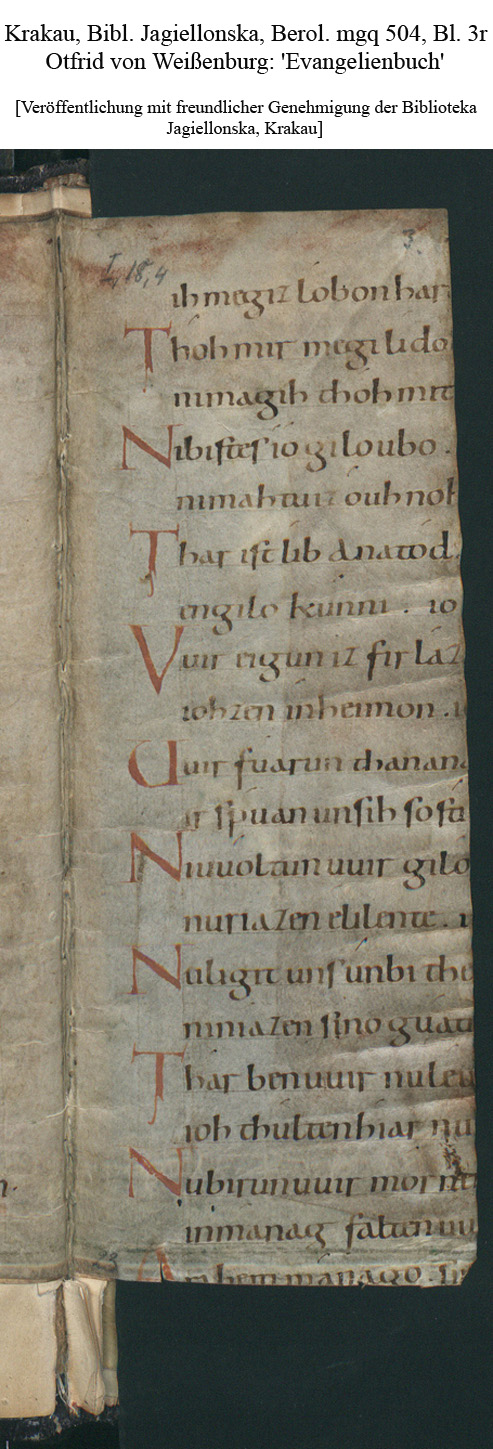 Krakau, Bibl. Jagiellonska, Berol. mgq 504, Bl. 3r
Otfrid von Weißenburg: 'Evangelienbuch'
[Veröffentlichung mit freundlicher Genehmigung der Biblioteka
Jagiellonska, Krakau]
3.
I, 18, 4
ih megiz lobon har
Thoh mir megi lido
nimagih thoh mit
Nibist es io giloubo.
nimahtuiz ouh noh
Thar ist lib ana tod.
engilo kunni. io
Vuir eigun iz firlaz
ioh zen inheimon. i
Uuir fuarun thanana
ir spuan unsih so sti
Niuuolam uuir gilo
nu riazen elilente. i
Nu ligit uns umbi the
niniazen sino guati
Thar ben uuir nu leu
ioh thulten hiar nu
Nu birun uuir mornt
in manag falten uu